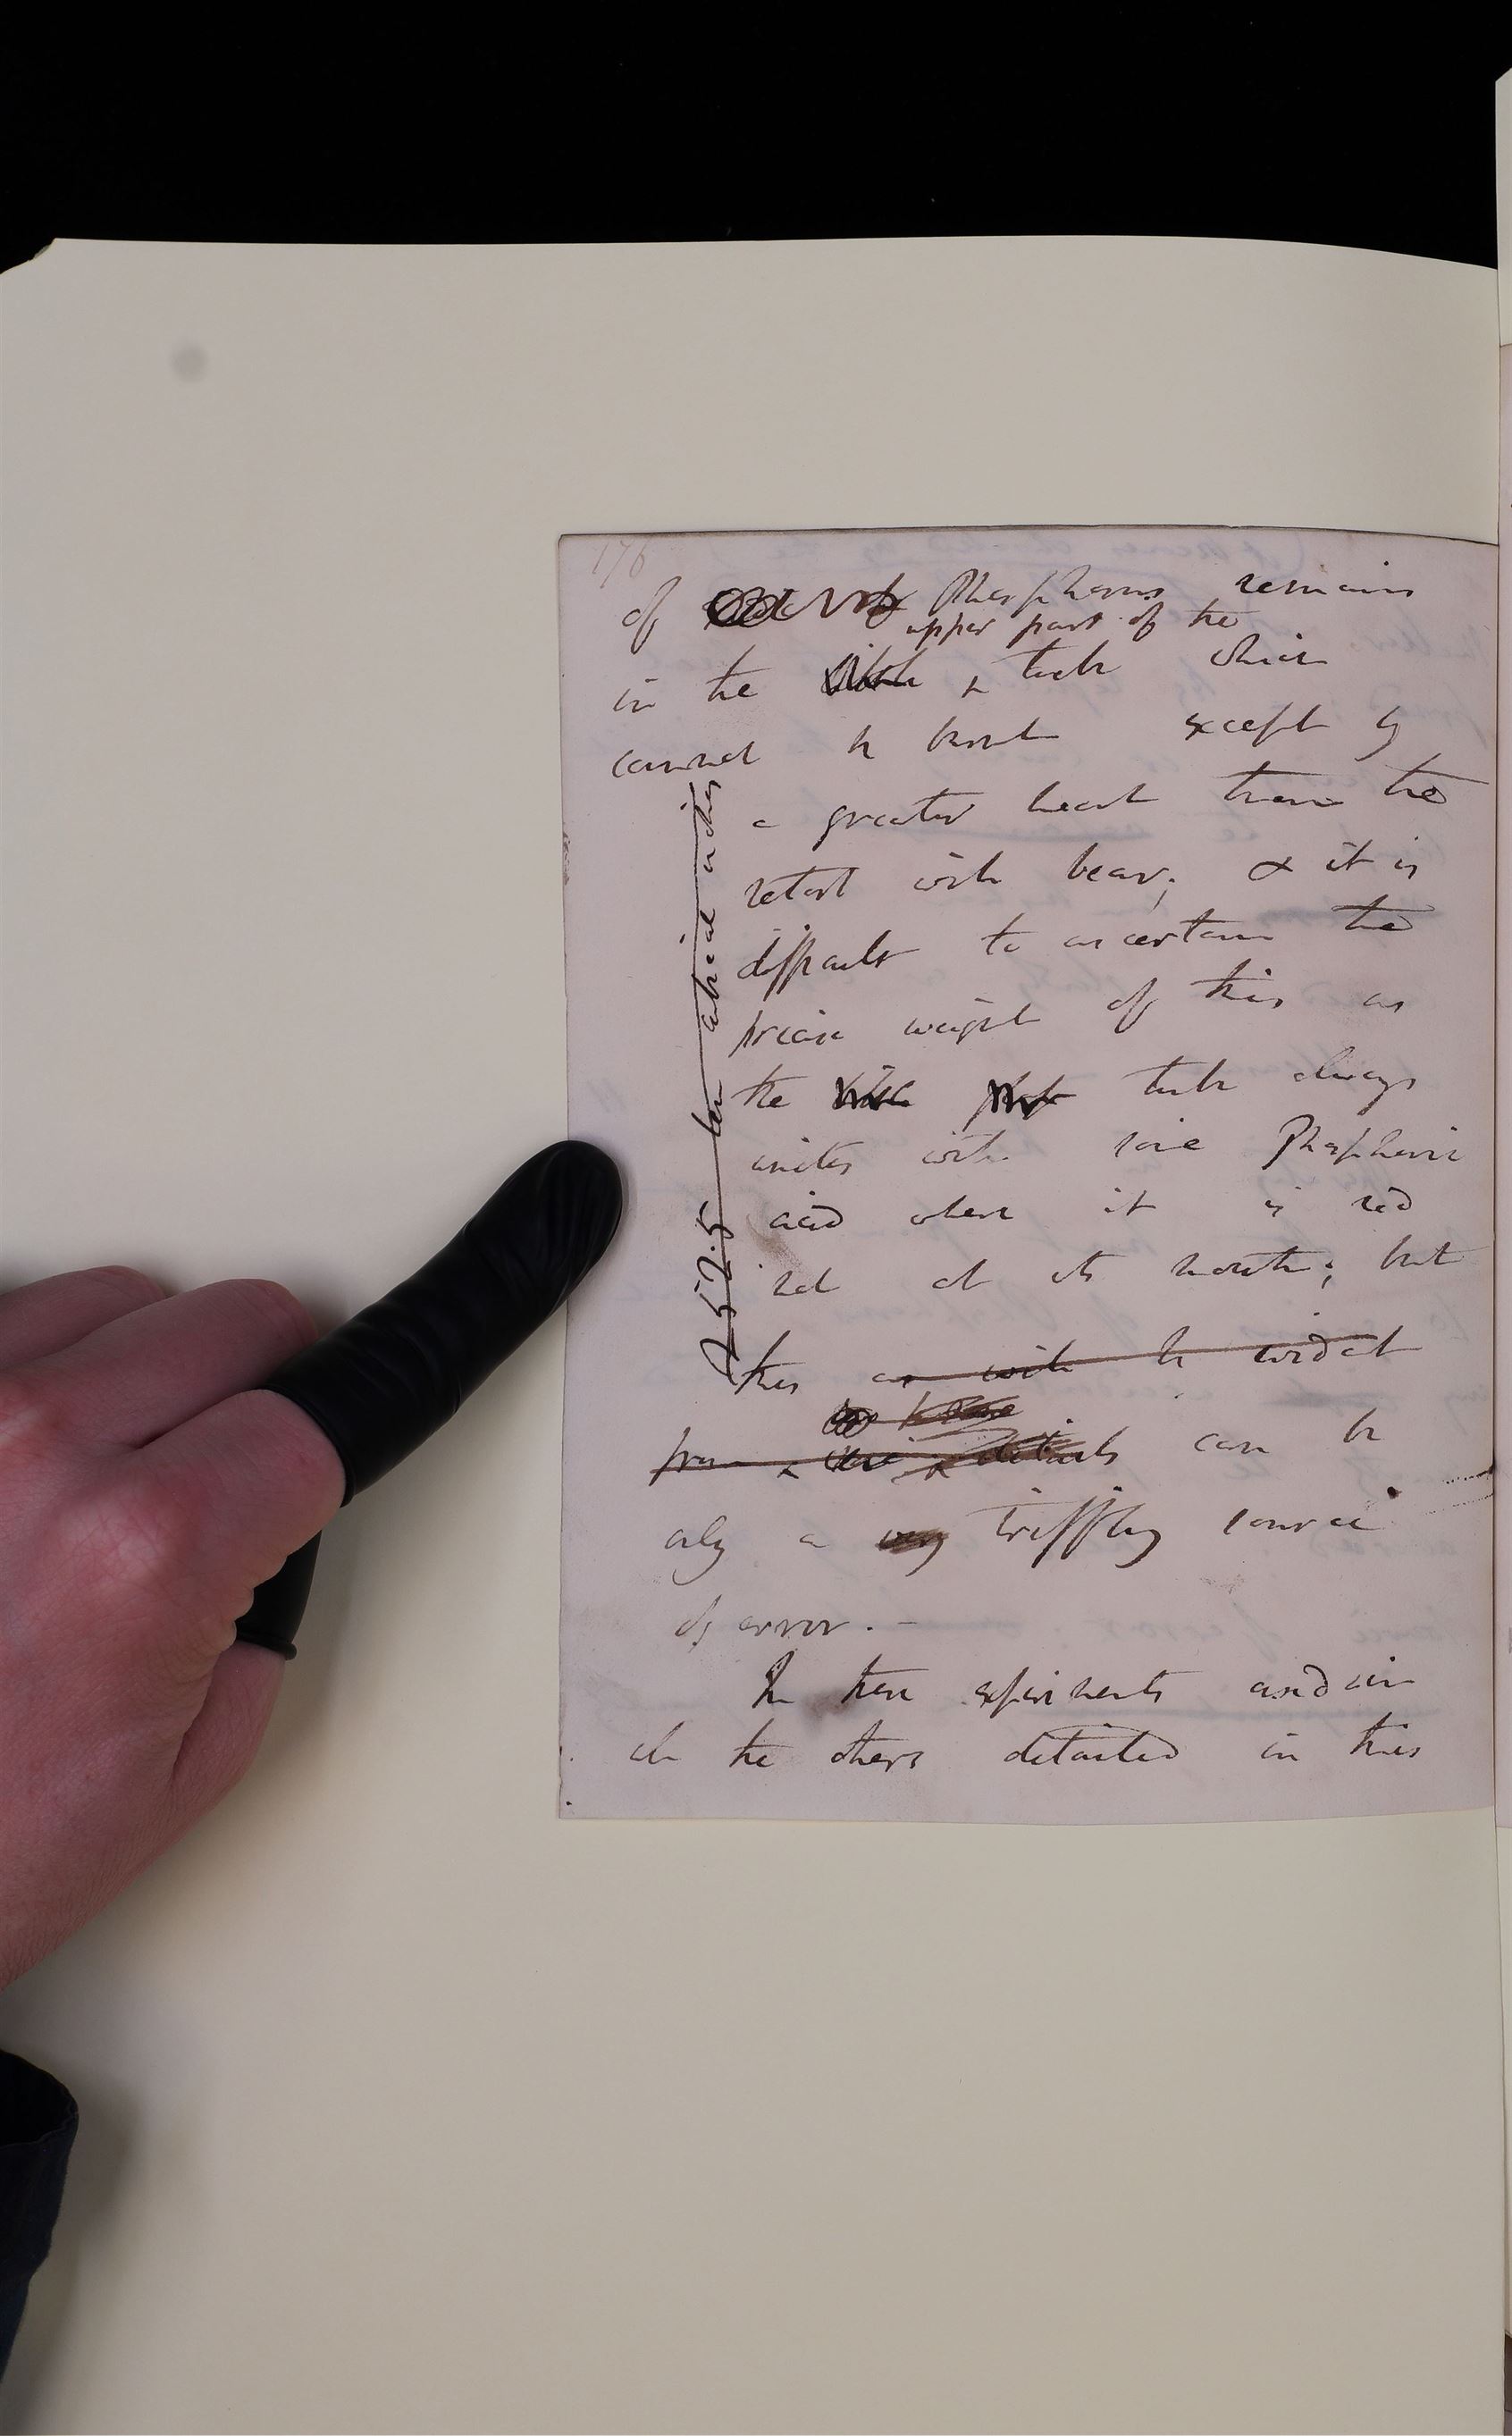 176
of Phosphorus remains
upper part of the
in the tube which
cannot be burnt except by
a greater heat than the
retort will bear; & it is
difficult to ascertain the
precise weight of this as
the tube always
unites with some Phosphoric
acid where it is red
hot at its mouth; but
this as will be evident
from details can be
only a very triffling source
of error. —
In these experiments and in
all the others detailed in this
252.5 cubical inches